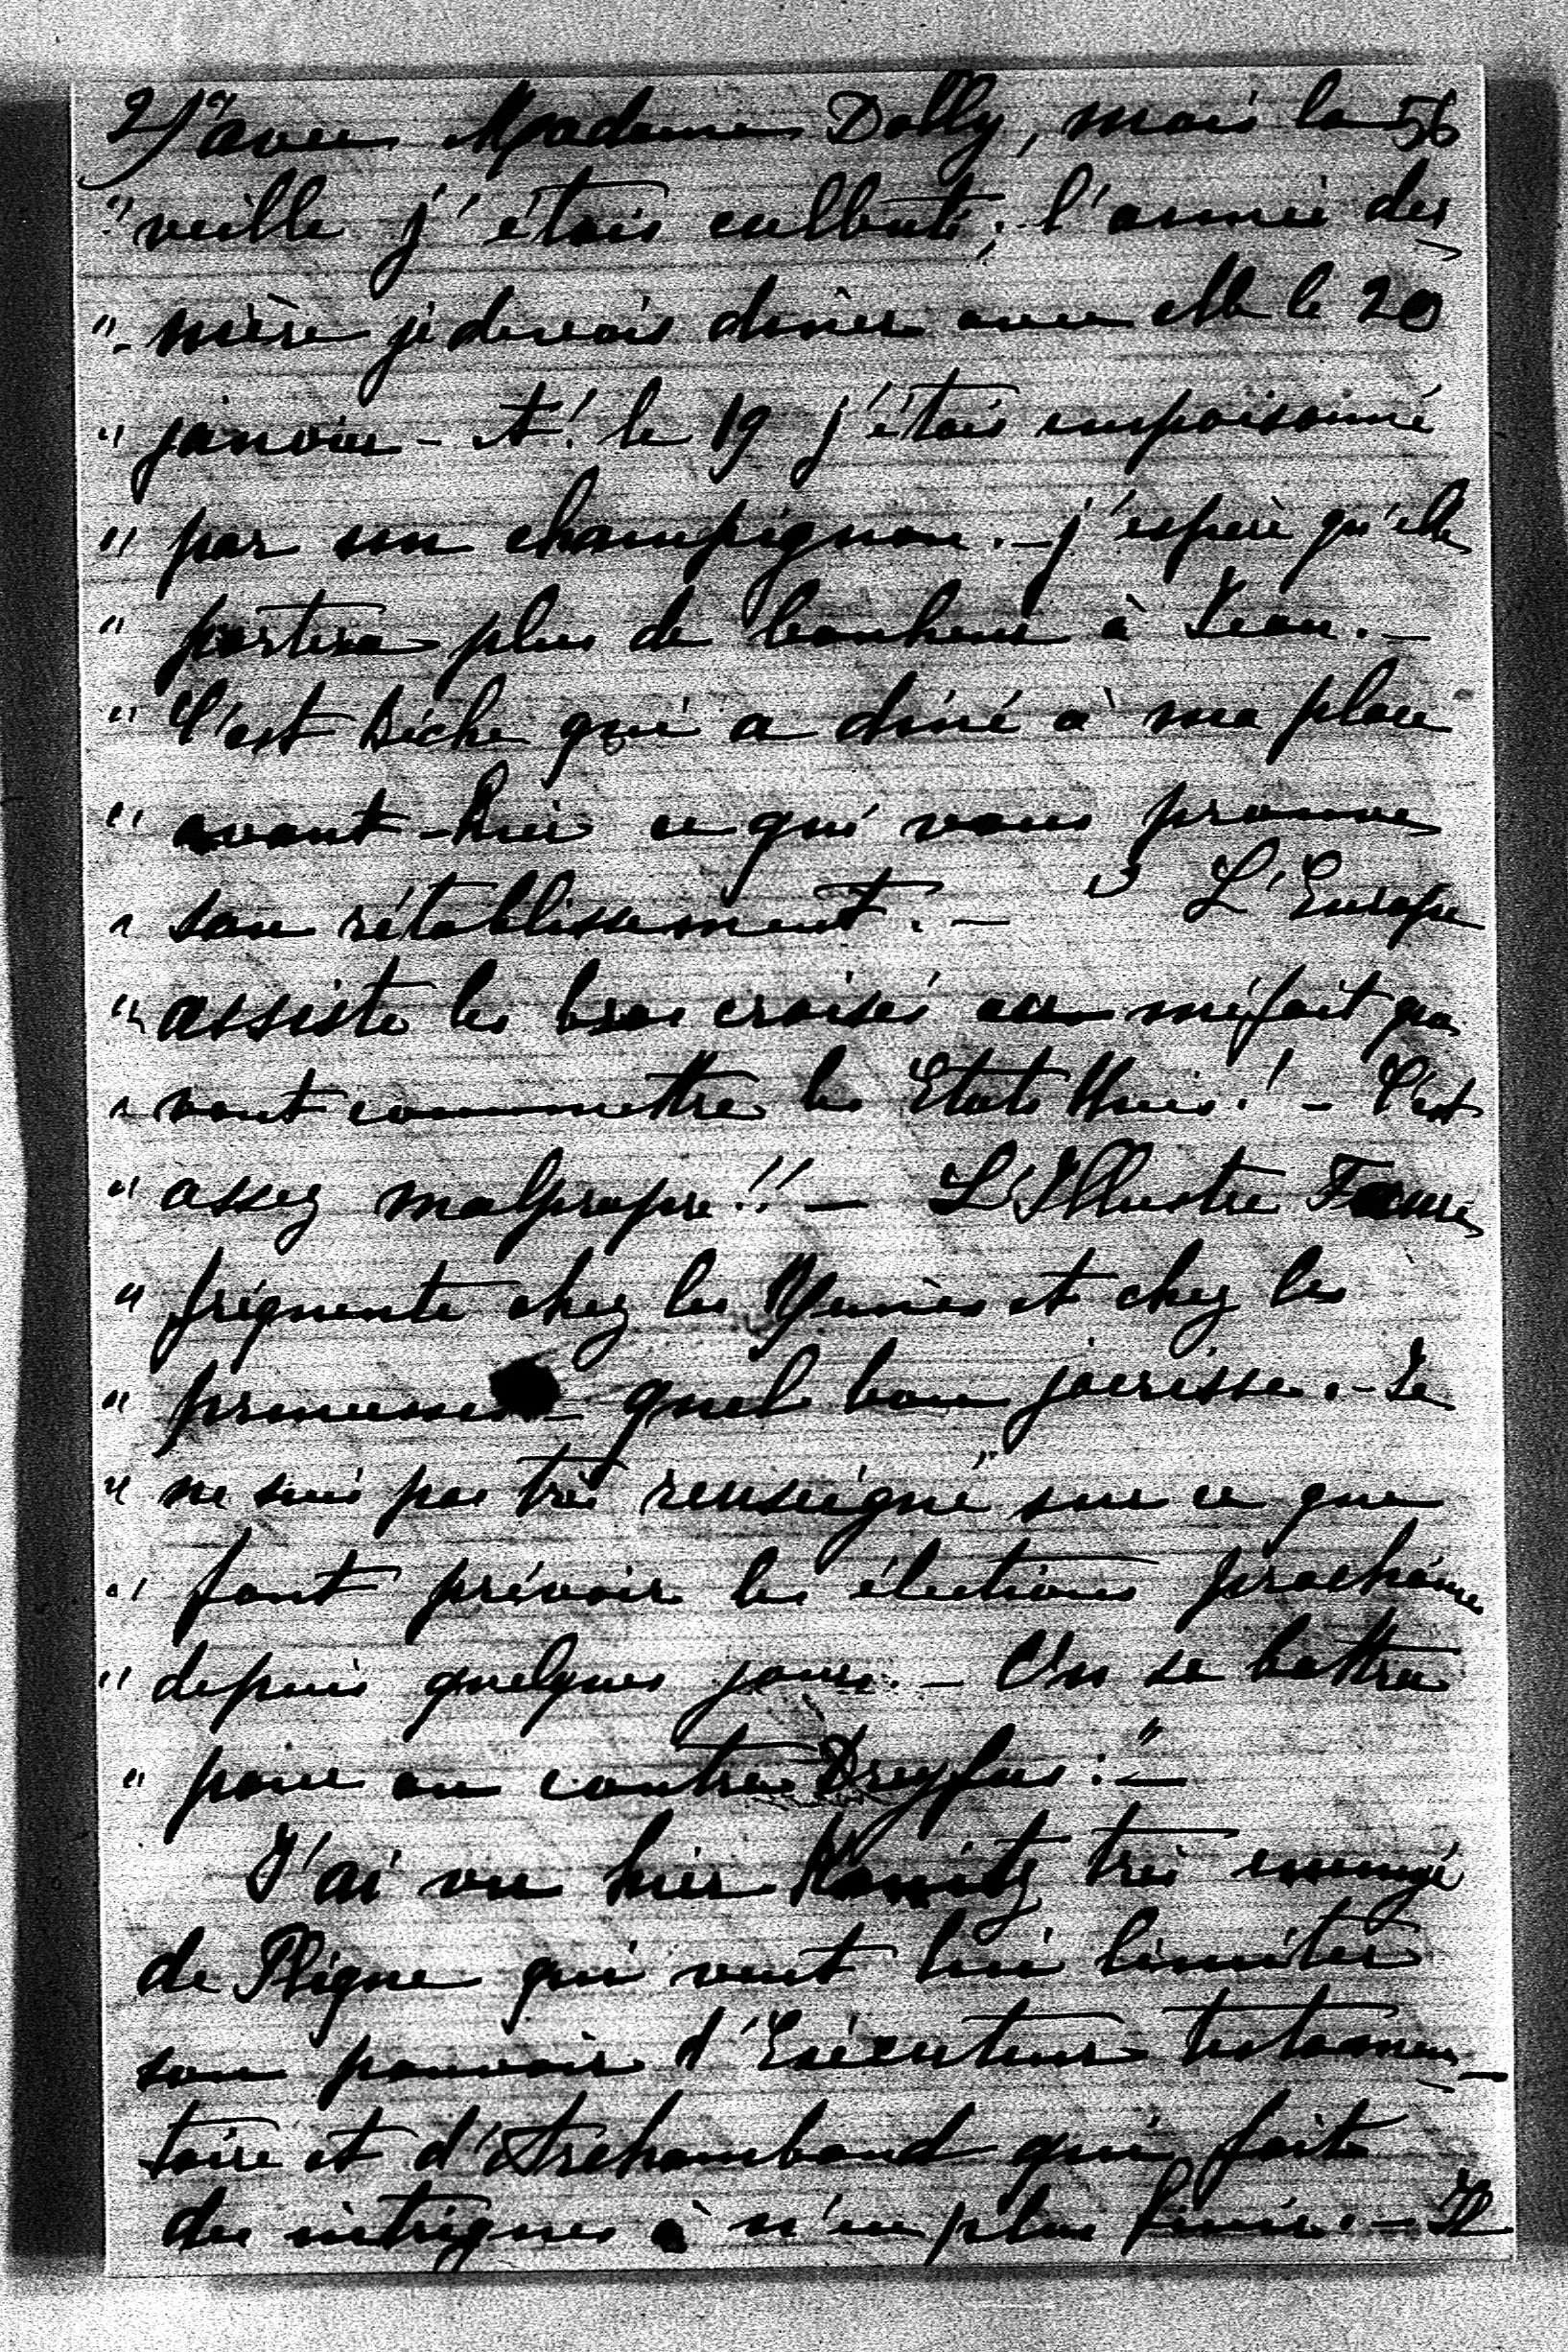 2/ " avec Madame Dolly, mais la 56
" veille j'étais culbuté; l'année der
" - nière je devais dîner avec elle le 20
" janvier - et! le 19 j'étais empoisonné
" par un champignon. - j'espère qu'elle
" portera plus de bonheur à Jean. -
" C'est Biche qui a dîné à ma place
" avant-hier ce qui vous prouve
" son rétablissement. - " L'Europe
" assiste les bras croisés au méfait que
" vont commettre les Etats Unis! - C'est
" assez malpropre!! - L'Illustre Faure
" fréquente chez les et chez les
" princesses - quel bon jocrisse. - Je
" ne suis pas très renseigné sur ce que
" font prévoir les élections prochaines
" depuis quelques jours. - On se battra
" pour ou contre Dreyfus." -
J'ai vu hier très ennuyé
de Pligne qui veut lui limiter
son pouvoir d'Exécuteur testamen-
taire et d'Archambaud qui fait
des intrigues à n'en plus finir. - Il